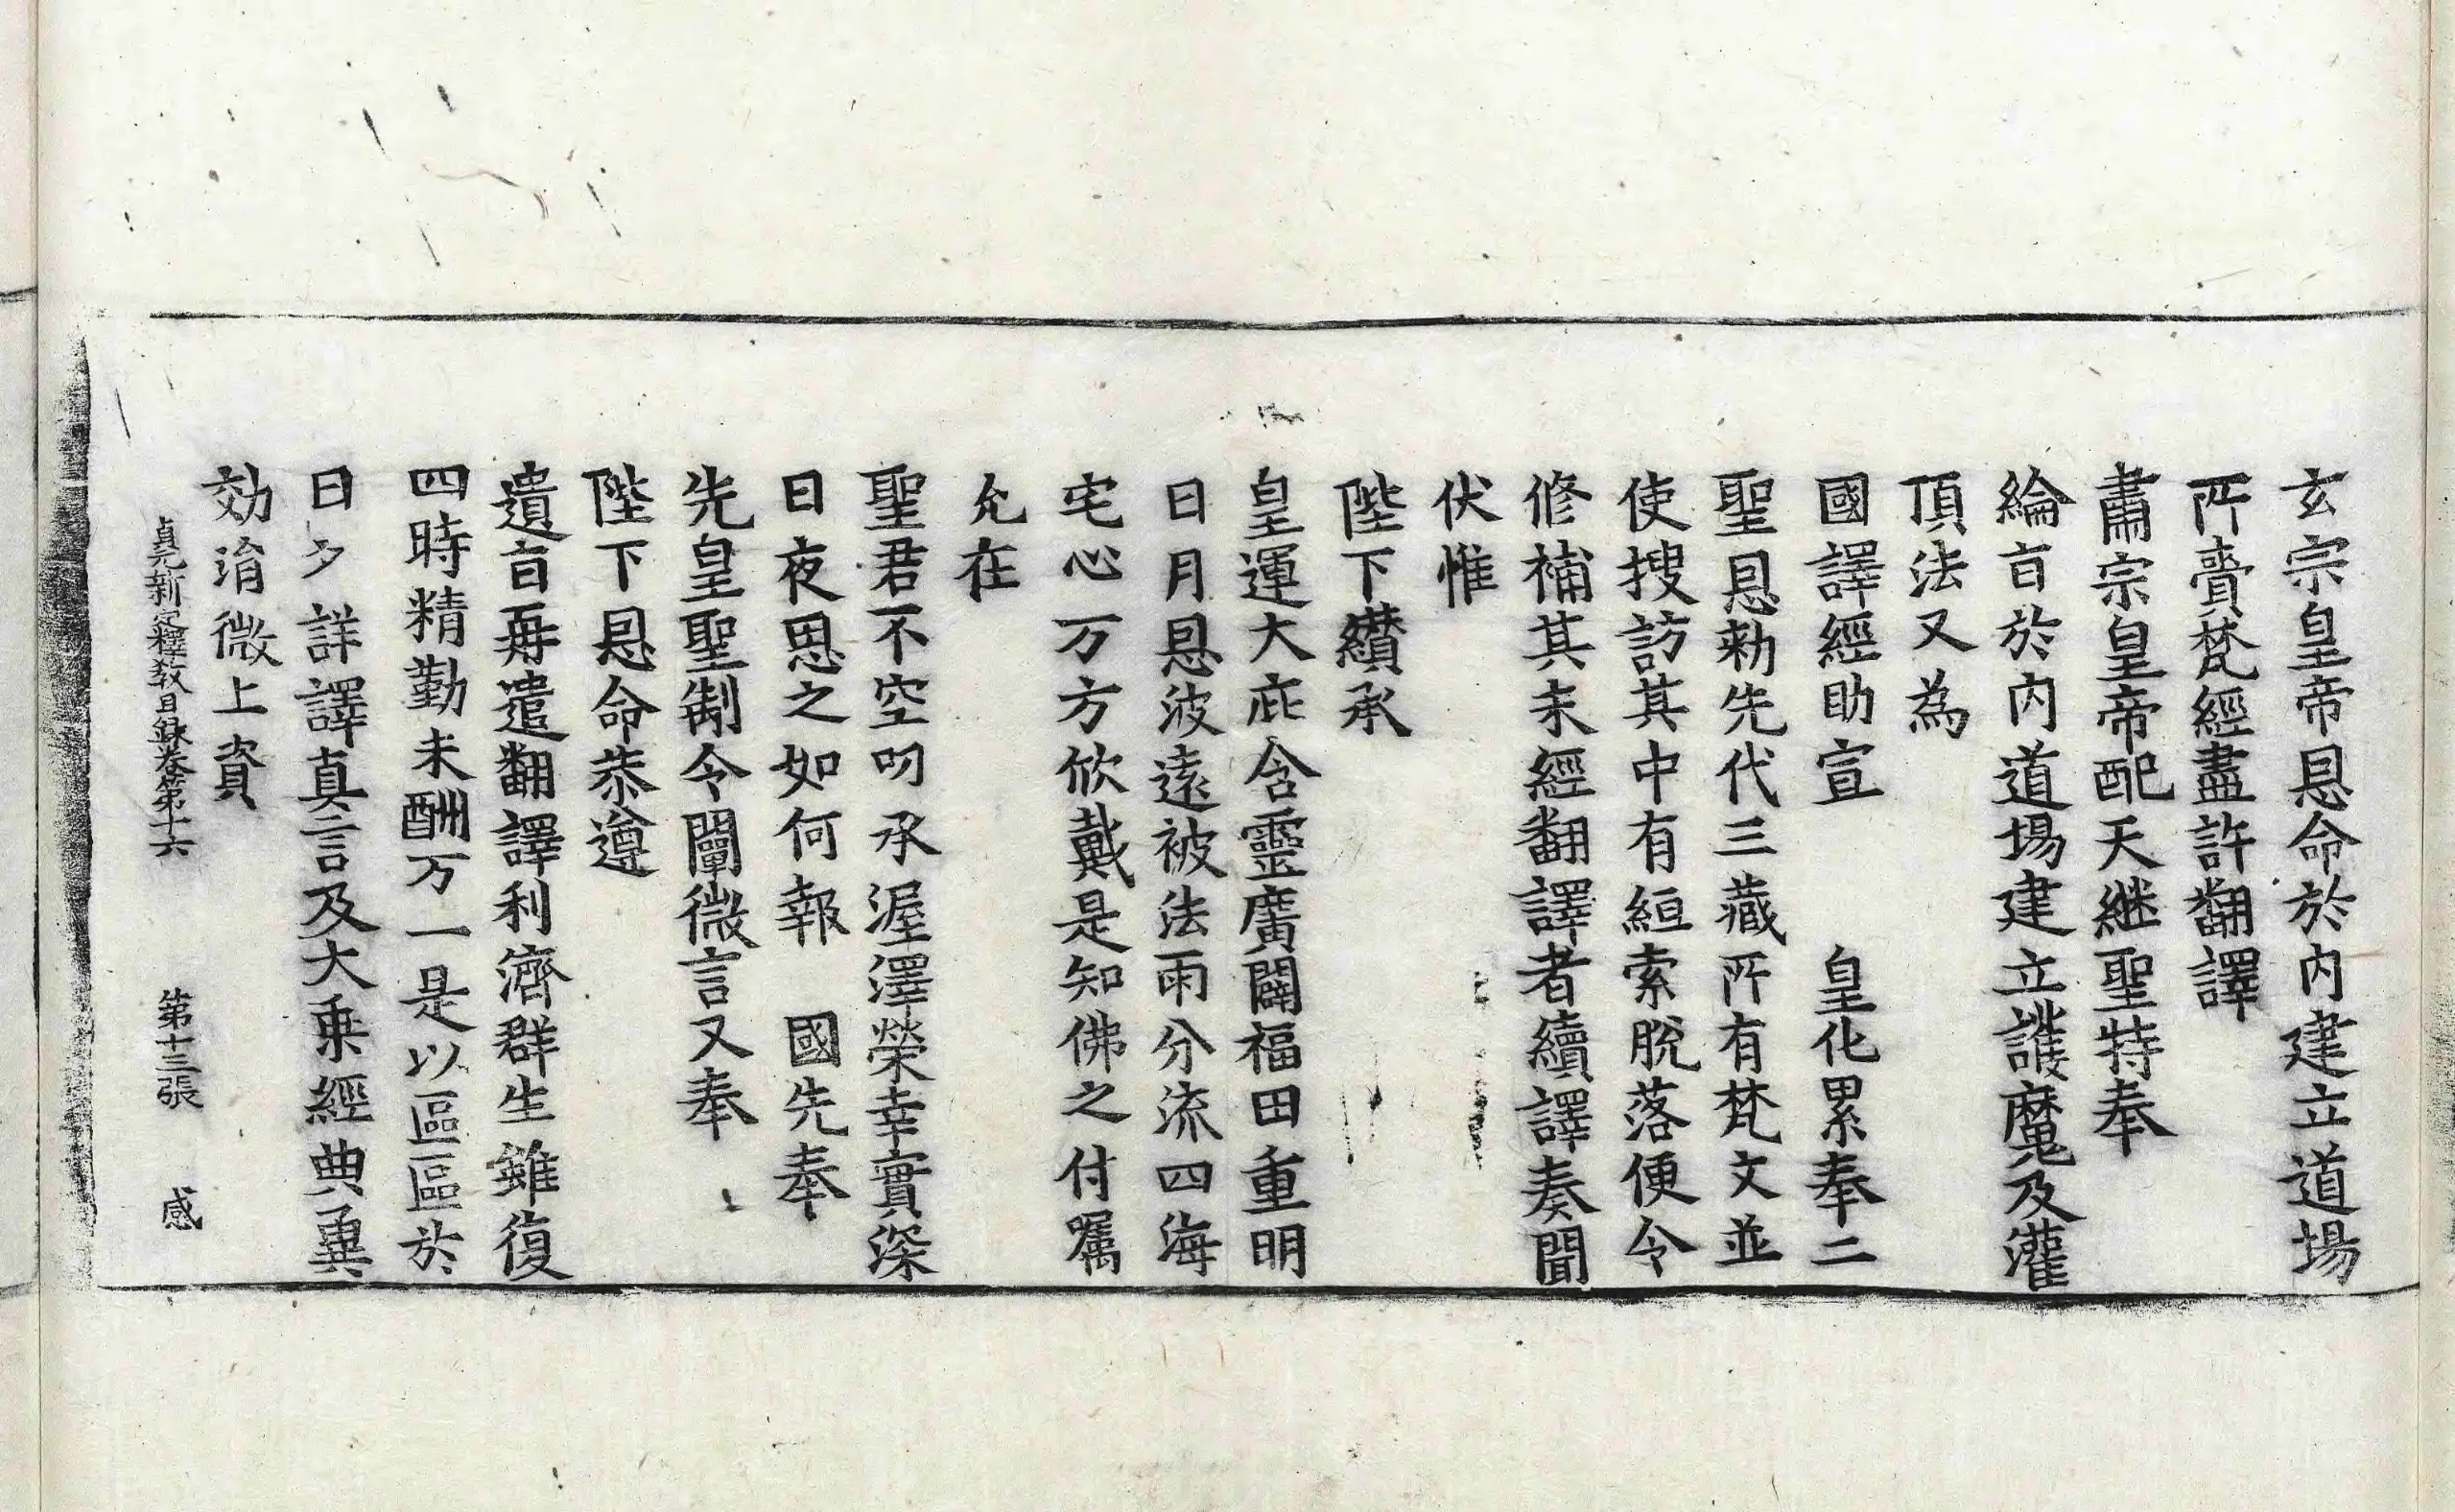 玄宗皇帝恩命於内建立道場
所賷梵經盡許翻譯
肅宗皇帝配天継聖特奉
綸旨於内道場建立護魔及灌
頂法又為
國譯經助宣　　皇化累奉二
聖恩勑先代三藏所有梵文並
使搜訪其中有絚索脫落便令
修補其未經翻譯者續譯奏聞
伏惟
陛下纘承
皇運大庇含靈廣闢福田重明
日月恩波遠被法雨分流四海
宅心万方欣戴是知佛之付囑
允在
聖君不空叨承渥澤榮幸實深
日夜思之如何報　國先奉
先皇聖制令闡微言又奉
陛下恩命恭遵
遺旨再遣翻譯利濟群生雖復
四時精勤未酬万一是以區區於
日夕詳譯真言及大乗經典兾
効涓微上資
貞元新定釋教目録卷第十六　第十三張　感